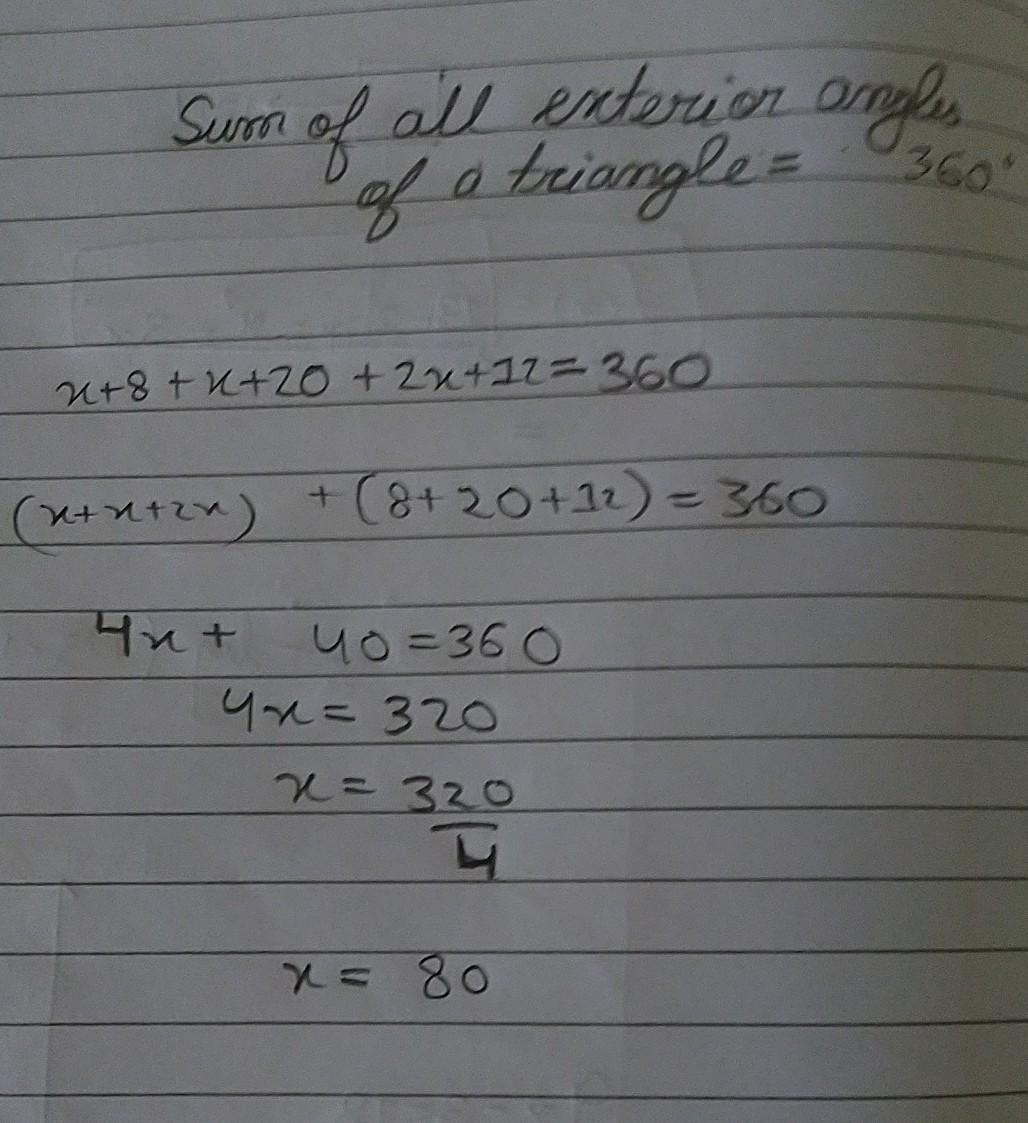 Sum of all exterior angles
of a triangle = 360°
x+8+x+20+2x+12=360
(x+x+2x) +(8+20+12)=360
4x+ 40=360
4x=320
x=320
4
x= 80